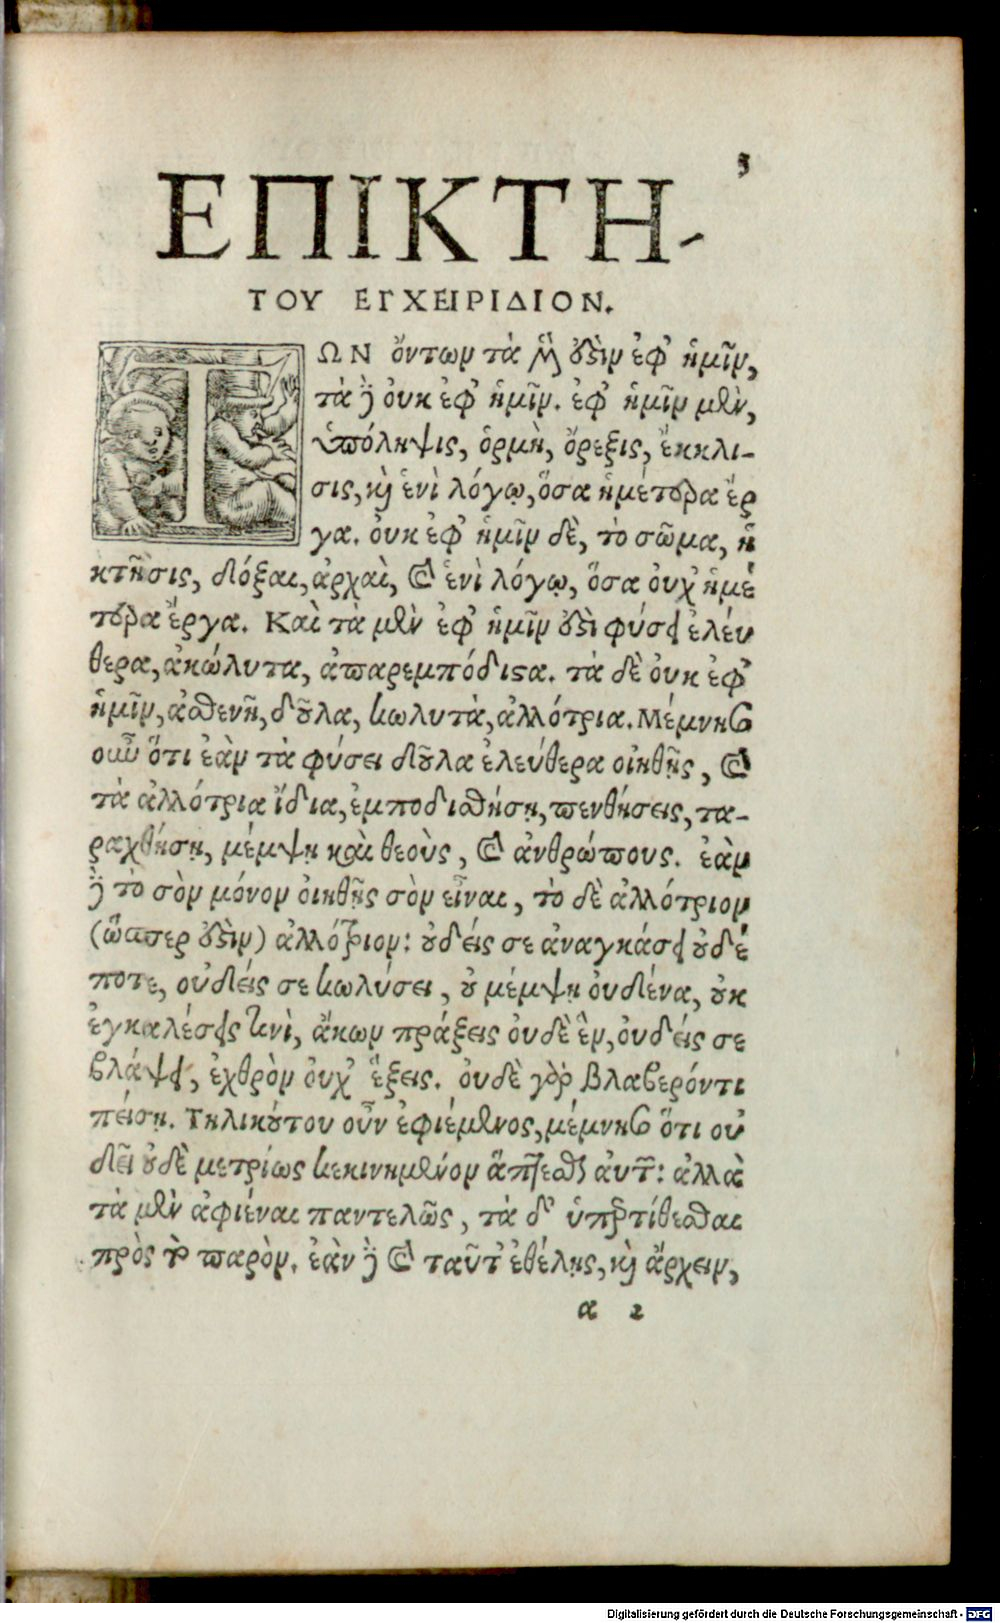 3
ΕΠΙΚΤΗ-
ΤΟΥ ΕΓΧΕΙΡΙΔΙΟΝ.
ΤΩΝ ὄντων τὰ μὲν ὅζιν ἐφ' ἡμῖν,
τὰ δὲ ὀυκ ἐφ' ἡμῖν. ἐφ' ἡμῖν μὲν,
ὑπόληψις, ὁρμὴ, ὄρεξις, ἔκκλι-
σις, καὶ ἑνὶ λόγῳ, ὅσα ἡμέτερα ἔρ
γα. ὀυκ ἐφ' ἡμῖν δὲ, τὸ σῶμα, ἡ
κτῆσις, δόξαι, ἀρχαὶ, καὶ ἑνὶ λόγῳ, ὅσα ὀυχ ἡμέ
τερα ἔργα. Καὶ τὰ μὲν ἐφ' ἡμῖν ὅζι φύσει ἐλέυ
θερα, ἀκώλυτα, ἀπαρεμπόδιϛα. τὰ δὲ ὀυκ ἐφ'
ἡμῖν, ἀσθενῆ, δοῦλα, κωλυτὰ, ἀλλότρια. Μέμνησο
οιῶ ὅτι ἐὰν τὰ φύσει δοῦλα ἐλεύθερα οἰηθῇς, καὶ
τὰ ἀλλότρια ἴδια, ἐμποδισθήσῃ, πενθήσεις, τα-
ραχθήσῃ, μέμψῃ καὶ θεοὺς, καὶ ἀνθρώπους. ἐὰν
δὲ τὸ σὸν μόνον ὀιηθῇς σὸν εἶναι, τὸ δὲ ἀλλότριον
(ὥσπερ ὅζιν) ἀλλότριον: ὀυδείς σε ἀναγκάσει ὀυδέ
ποτε, οὐδείς σε κωλύσει, οὐ μέμψῃ ὀυδένα, οὐκ
ἐγκαλέσεις τινὶ, ἄκων πράξεις ὀυδὲ ἓν, ὀυδείς σε
βλάψει, ἐχθρὸν ὀυχ' ἕξεις. ὀυδὲ γὰρ βλαβερόν τι
πείσῃ. Τηλικούτου οὖν ἐφιέμενος, μέμνησο ὅτι οὐ
δεῖ οὐδὲ μετρίως κεκινημένον ἅπτεσθαι ἀυτῶν: ἀλλὰ
τὰ μὲν ἀφιέναι παντελῶς, τὰ δ' ὑπερτίθεσθαι
πρὸς τὸ παρὸν. ἐὰν δὲ καὶ ταῦτ' ἐθέλῃς, καὶ ἄρχειν,
α 2
Digitalisierung gefördert durch die Deutsche Forschungsgemeinschaft - DFG